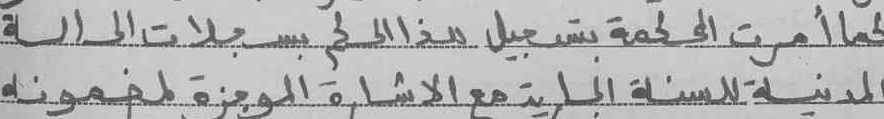 كما أمرت المحكمة بتسجيل هذا الحكم بسجلات الحالة
المدنية للسنة الجارية مع الاشارة الموجزة لمضمونه